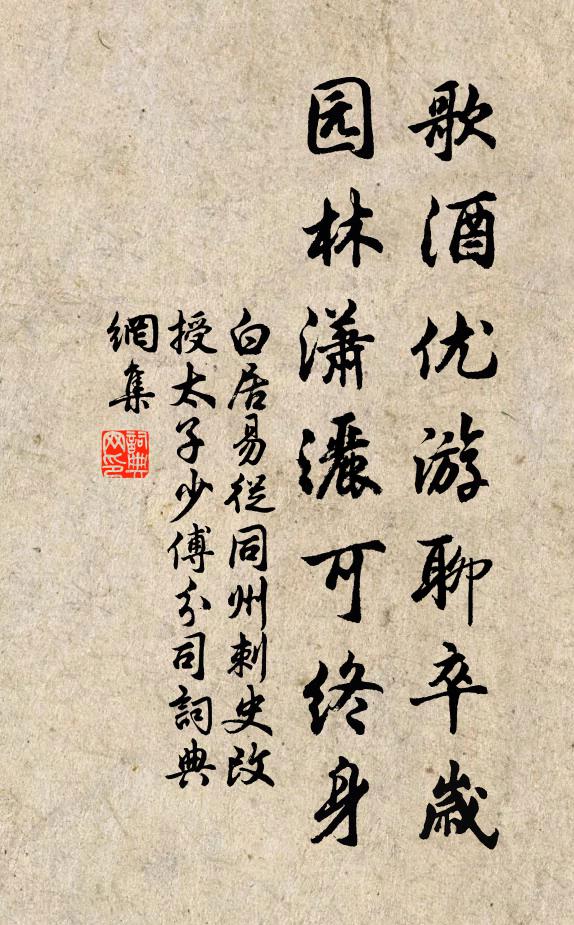 歌酒优游聊卒歲
园林瀟灑可终身
白居易從同州刺史改
授太子少傅分司詞典
網集
詞典网印